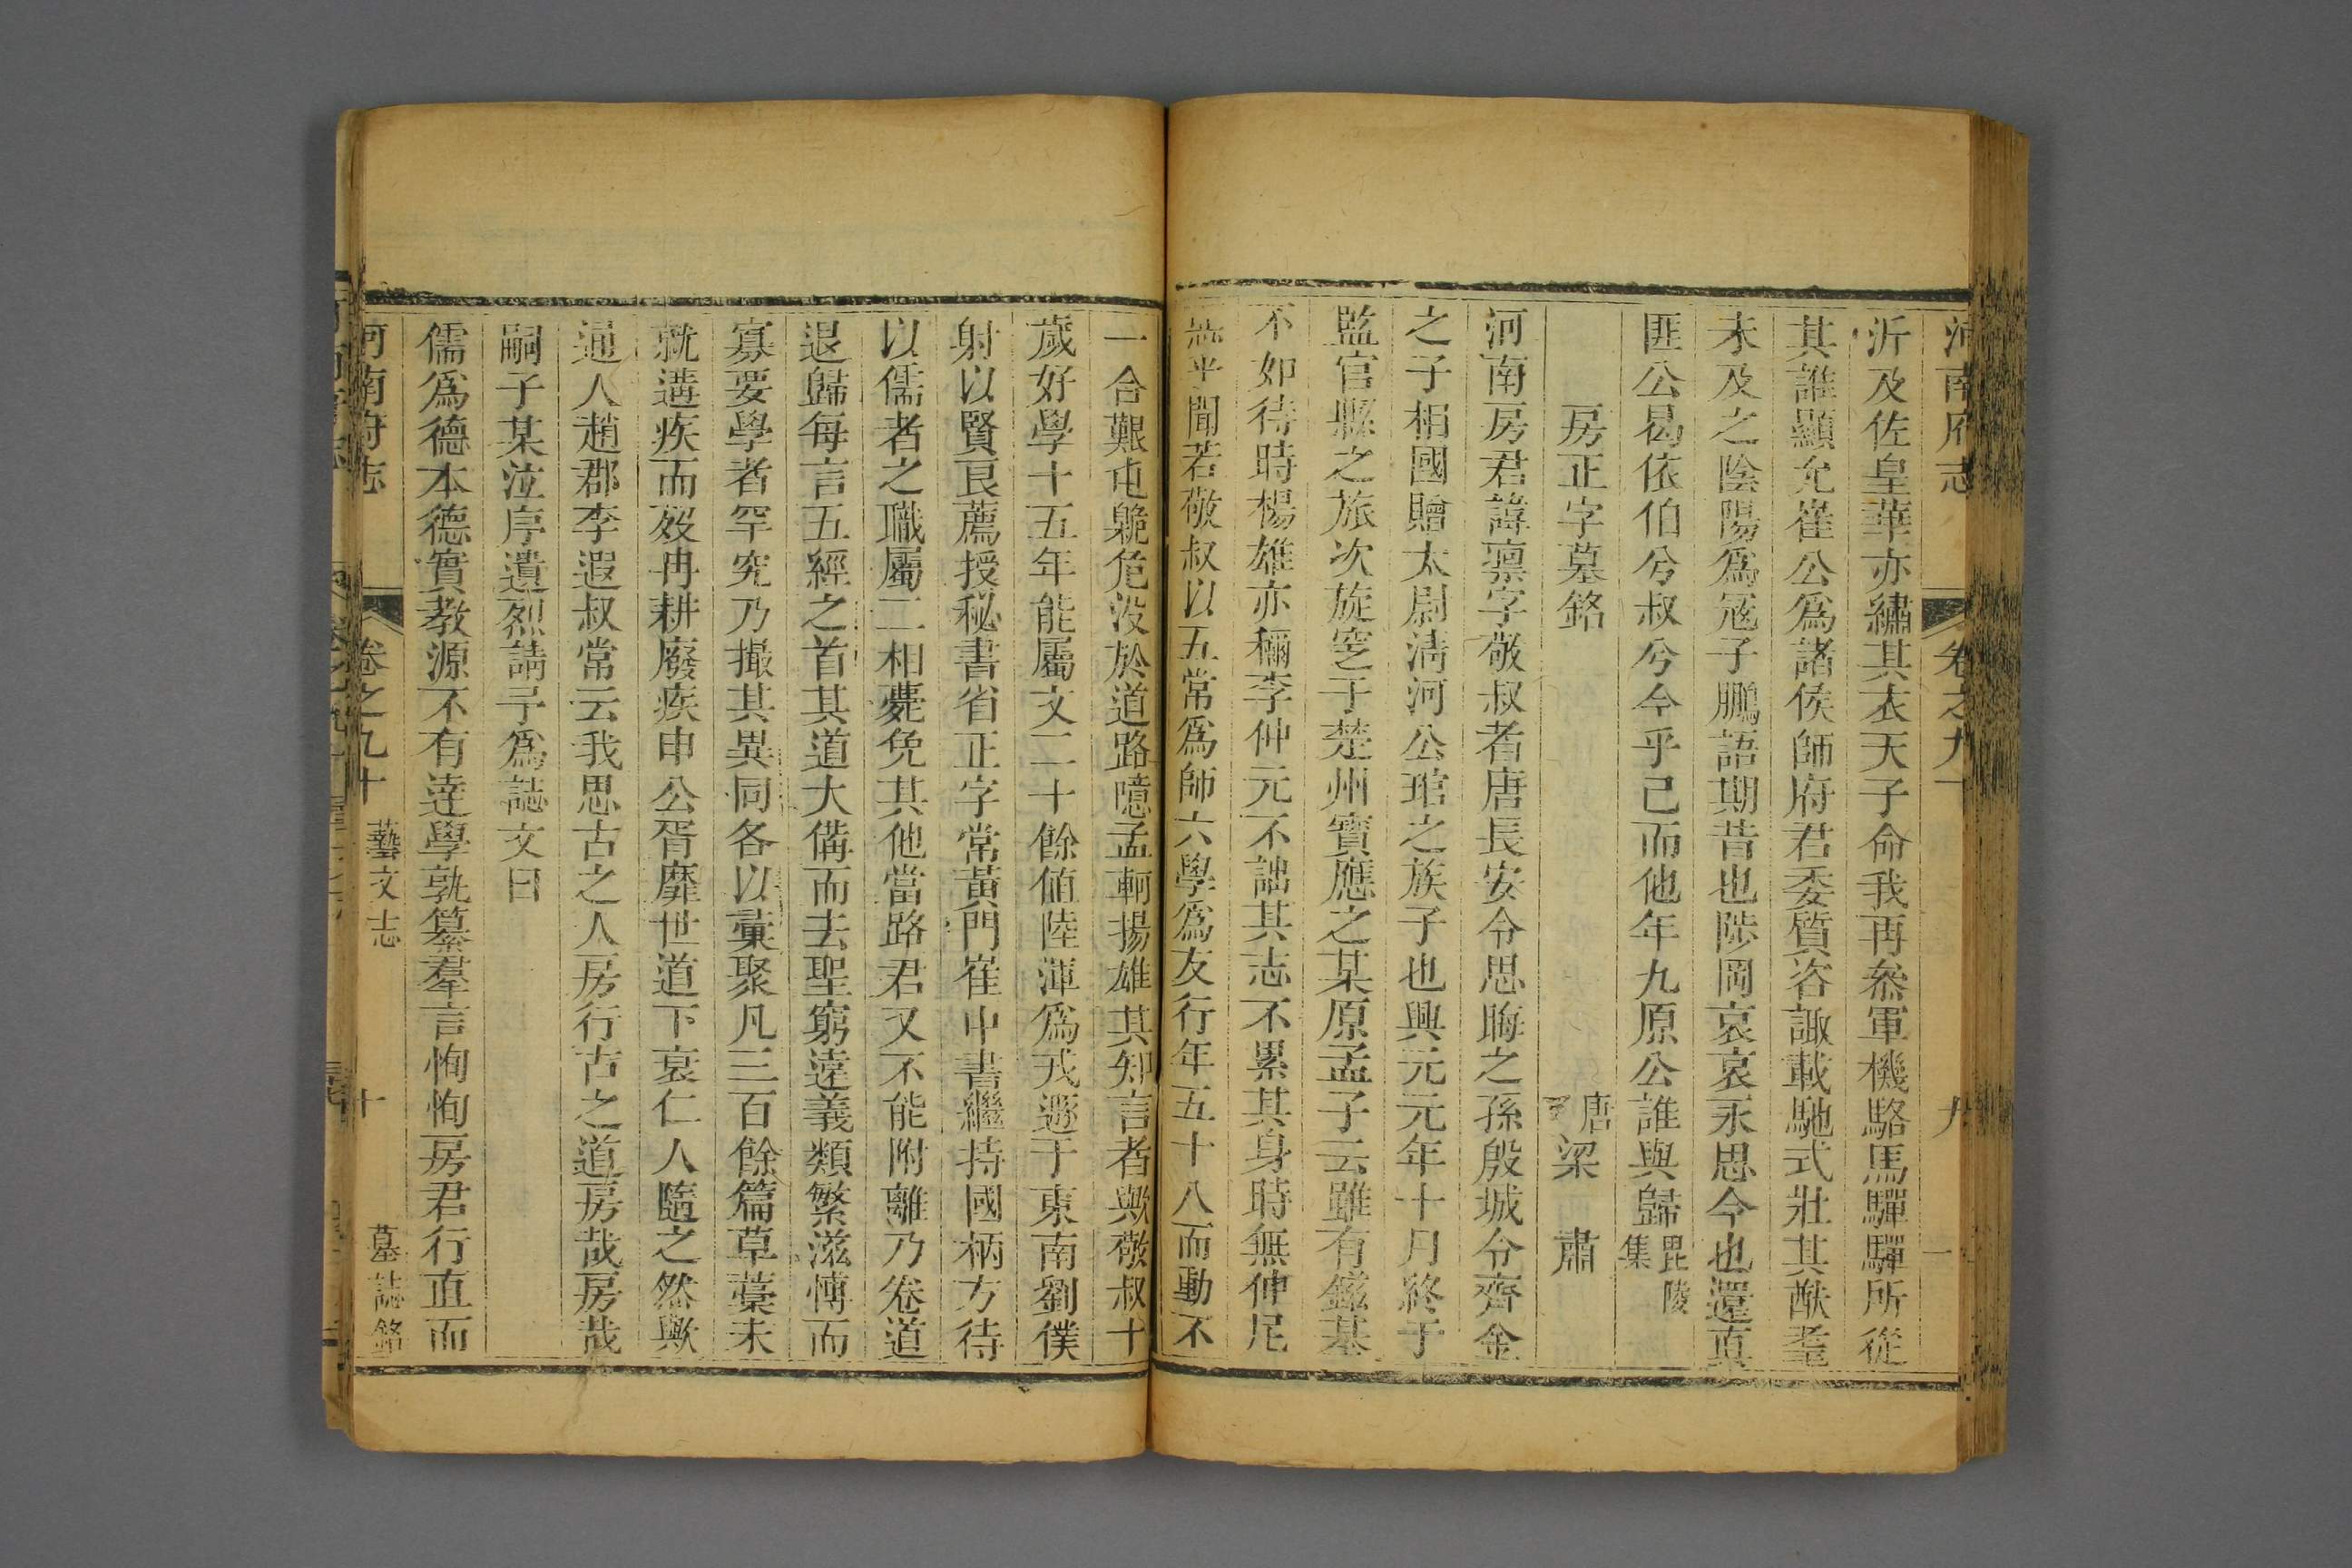 河南府志 卷之九十 九
沂及佐皇華亦繡其衣天子命我再叅軍機駱馬驒驒所從
其誰顯允崔公爲諸侯師府君委質咨諏載馳式壯其猷耋
未及之陰陽爲寇子鵬語期昔也陟岡哀哀永思今也還真
匪公曷依伯兮叔兮今乎已而他年九原公誰與歸毘陵集
房正字墓銘 唐梁肅
河南房君諱凛字敬叔者唐長安令思晦之孫殷城令齊金
之子相國贈太尉淸河公琯之族子也興元元年十月終于
監官縣之旅次旋窆于楚州寶應之某原孟子云雖有鎡基
不如待時楊雄亦稱李仲元不詘其志不累其身時無仲尼
平聞若敬叔以五常爲師六學爲友行年五十八而動不
一合艱屯臲危没於道路噫孟軻揚雄其知言者歟敬叔十
歲好學十五年能屬文二十餘値陸渾爲戎遯于東南劉僕
射以賢良薦授秘書省正字常黃門崔中書繼持國柄方待
以儒者之職屬二相薨免其他當路君又不能附離乃卷道
退歸每言五經之首其道大偹而去聖窮遠義類繁滋愽而
寡要學者罕究乃撮其異同各以彙聚凡三百餘篇草藁未
就遘疾而歿冉耕廢疾申公胥靡世道下衰仁人隨之然歟
通人趙郡李遐叔常云我思古之人房行古之道房哉房哉
嗣子某泣序遺烈請予爲誌文曰
儒爲德本德實教源不有達學孰纂羣言恂恂房君行直而
河南府志 卷之九十 藝文志 十 墓誌銘